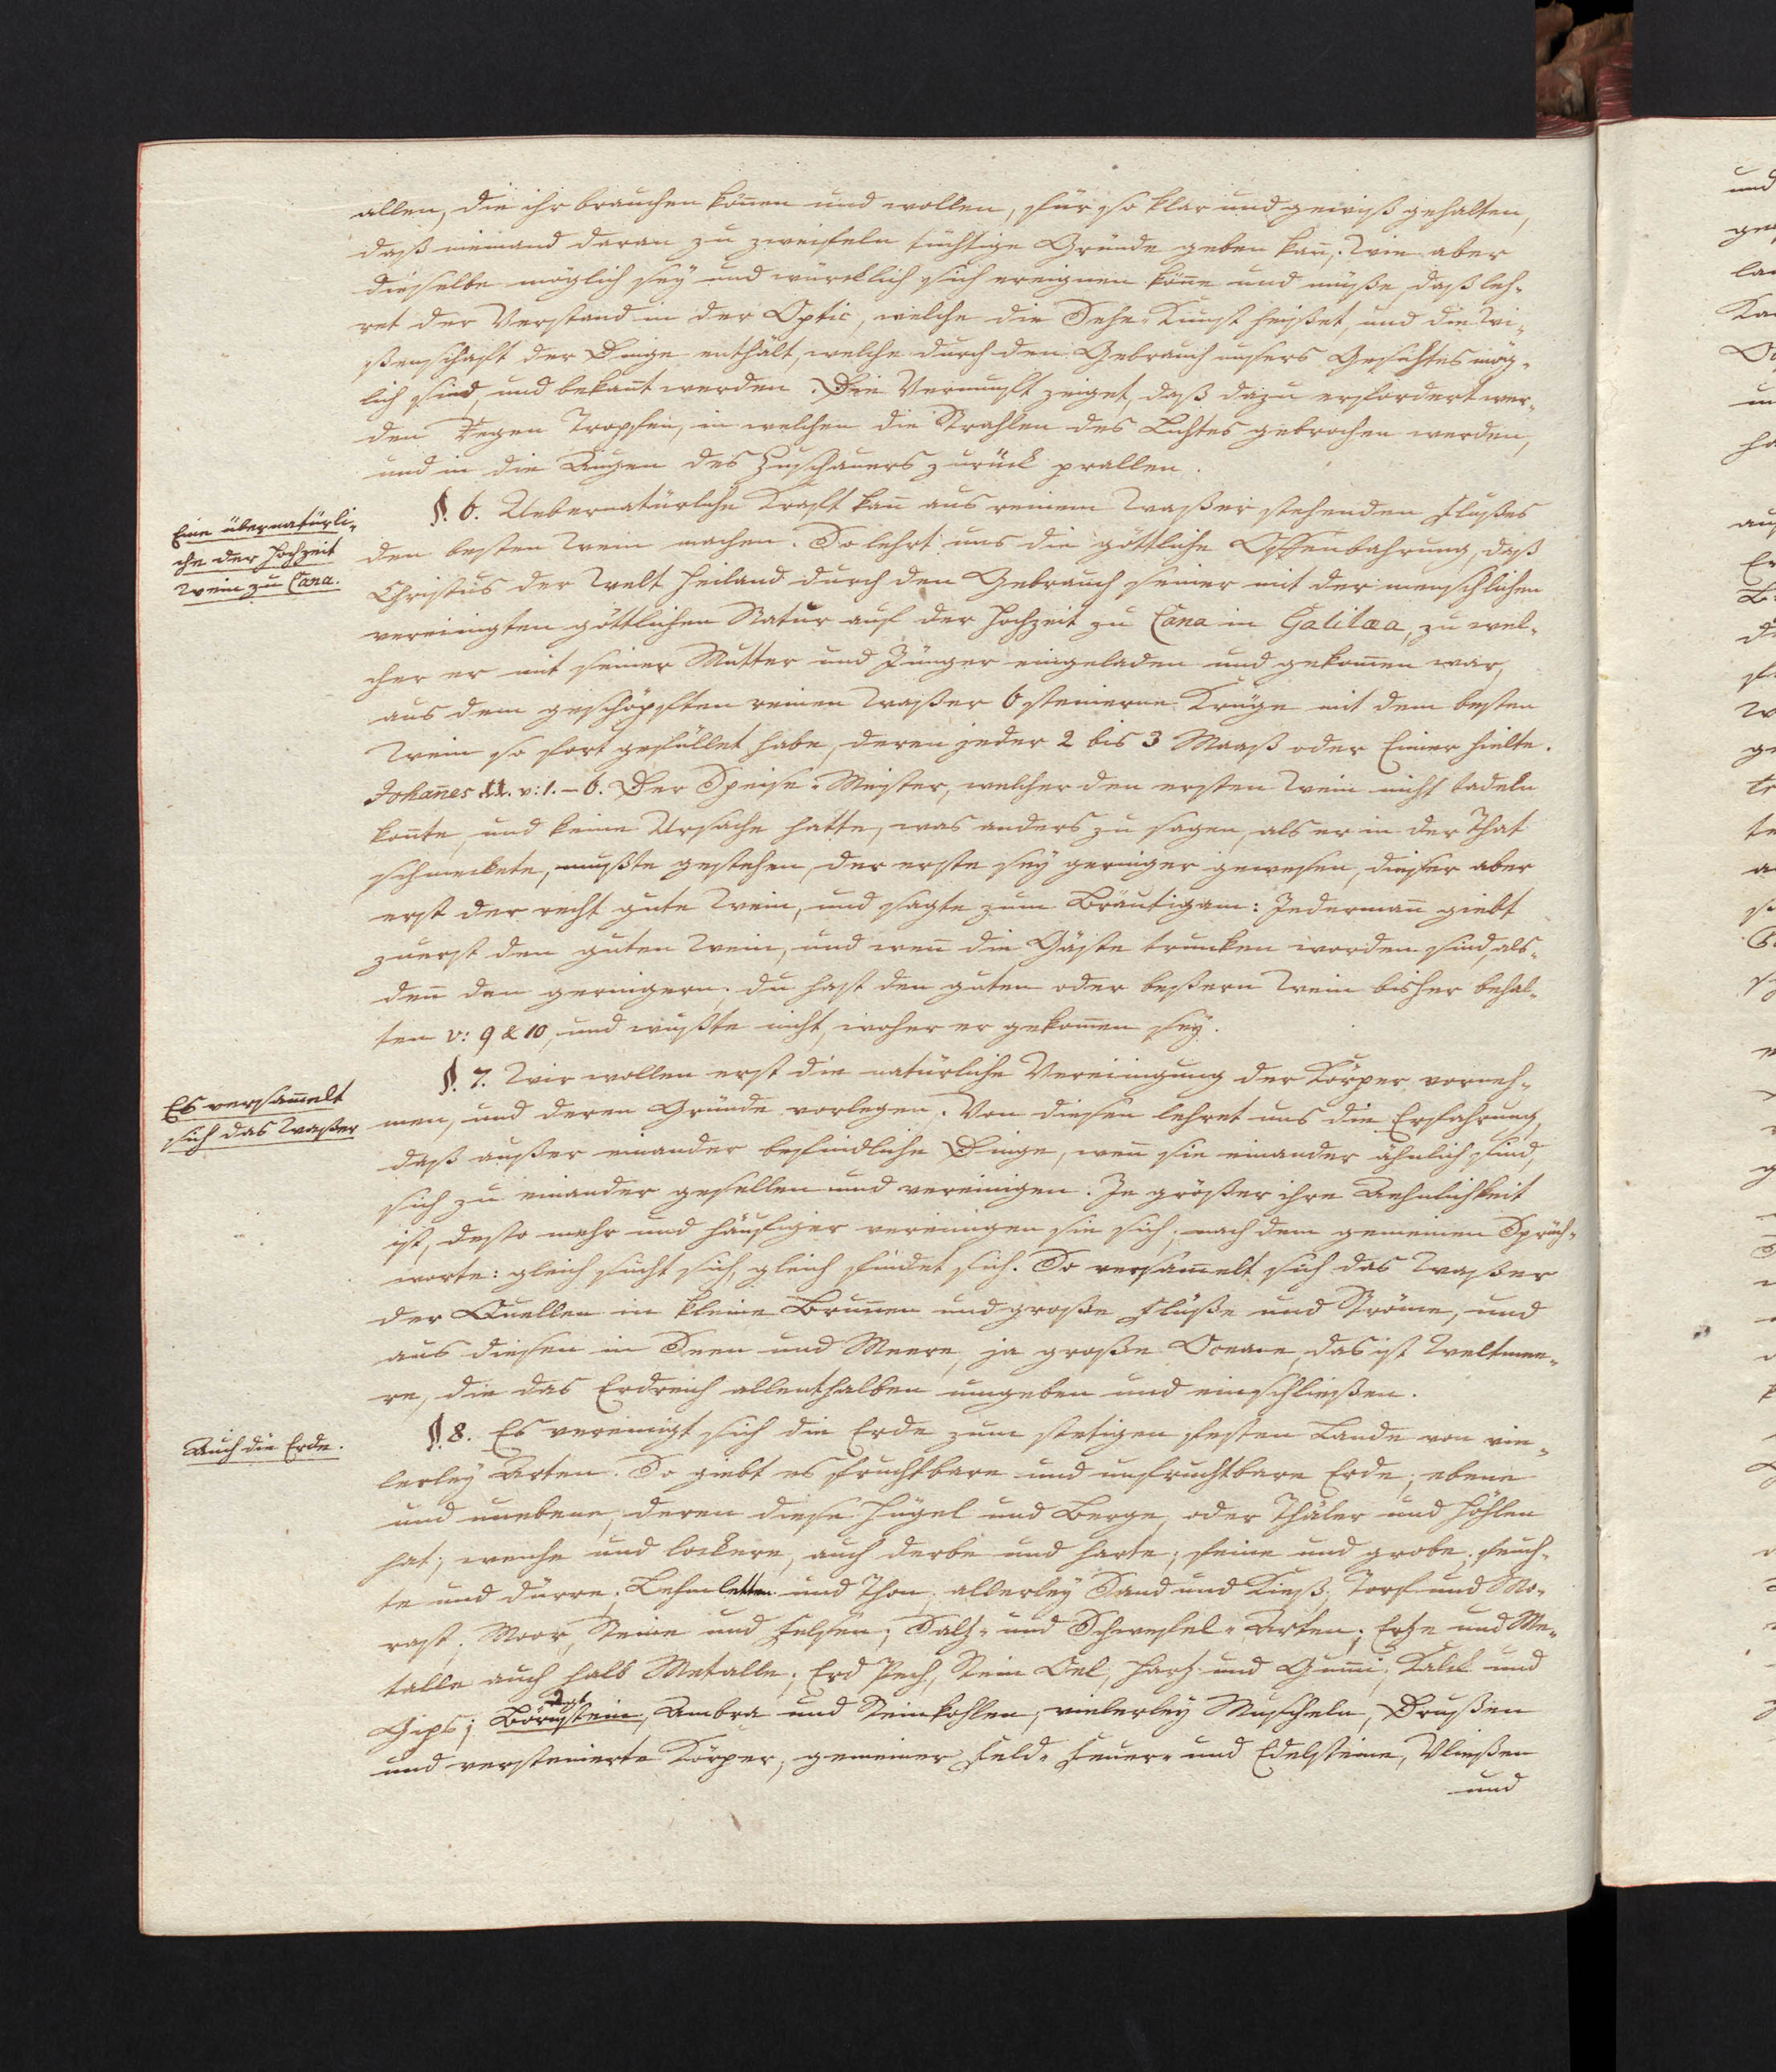 allen, die ihr brauchen können und wollen, für so klar und gewiß gehalten,
daß niemand daran zu zweifeln tüchtige Gründe geben kan̄. Wie aber
dieselbe möglich sey und würcklich sich ereignen kön̄e und müße, daß leh-
ret der Verstand in der Optic, welche die Sehe-Kunst heißet, und die Wi-
ßenschaft der Dinge enthält, welche durch den Gebrauch unsers Gesichtes mög-
lich sind, und bekan̄t werden. Die Vernunft zeiget, daß dazu erfordert wer-
den Regen Tropfen, in welchen die Strahlen des Lichtes gebrochen werden,
und in die Augen des Zuschauers zurück prallen.
Eine übernatürli-
che der Hochzeit
Wein zu Cana.
§. 6. Uebernatürliche Kraft kan̄ aus reinem Waßer stehenden Flußes
den besten Wein machen. So lehrt uns die göttliche Offenbahrung, daß
Christus der Welt Heiland durch den Gebrauch seiner mit der menschlichen
vereinigten göttlichen Natur auf der Hochzeit zu Cana in Galilæa, zu wel-
cher er mit seiner Mutter und Jünger eingeladen und gekom̄en war,
aus dem geschöpften reinen Waßer 6 steinerne Krüge mit dem besten
Wein so fort gefüllet habe, deren jeder 2 bis 3 Maaß oder Eimer hielte.
Johan̄es II. v: 1. – 6. Der Speise-Meister, welcher den ersten Wein nicht tadeln
kon̄te, und keine Ursache hatte, was anders zu sagen, als er in der That
schmeckete, mußte gestehen, der erste sey geringer gewesen, dieser aber
erst der recht gute Wein, und sagte zum Bräutigam: Jederman̄ giebt
zuerst den guten Wein, und wen̄ die Gäste trunken worden sind, als-
den̄ den geringern; du hast den guten oder beßern Wein bisher behal-
ten v: 9 & 10, und wußte nicht, woher er gekom̄en sey.
Es versam̄elt
sich das Waßer
§. 7. Wir wollen erst die natürliche Vereinigung der Körper vorneh-
men, und deren Gründe vorlegen. Von diesen lehret uns die Erfahrung,
daß außer einander befindliche Dinge, wen̄ sie einander ähnlich sind,
sich zu einander gesellen und vereinigen. Je größer ihre Aehnlichkeit
ist, desto mehr und häufiger vereinigen sie sich; nach dem gemeinen Sprüch-
worte: gleich sucht sich, gleich findet sich. So versam̄elt sich das Waßer
der Quellen in kleine Brun̄en und große Flüße und Ströme, und
aus diesen in Seen und Meere, ja große Oceane, das ist Weltmee-
re, die das Erdreich allenthalben umgeben und einschließen.
Auch die Erde.
§. 8. Es vereinigt sich die Erde zum stetigen festen Lande von vie-
lerley Arten. So giebt es fruchtbare und unfruchtbare Erde; ebene
und unebene, deren diese Hügel und Berge, oder Thäler und Höhlen
hat; weiche und lockere, auch derbe und harte; feine und grobe; feuch-
te und dürre; Lehm letten und Thon; allerley Sand und Kieß; Torf und Mo-
rast; Moor, Steine und Felsen; Saltz- und Schwefel-Arten; Ertze und Me-
talle auch halb Metalle; Erd Pech, Stein Oel, Hartz und Gum̄i; Kalck und
Gips; Börnstein, Ambra und Steinkohlen; vielerley Muscheln, Drußen
und versteinerte Körper; gemeiner Feld- Feuer- und Edelsteine, Vließen
und